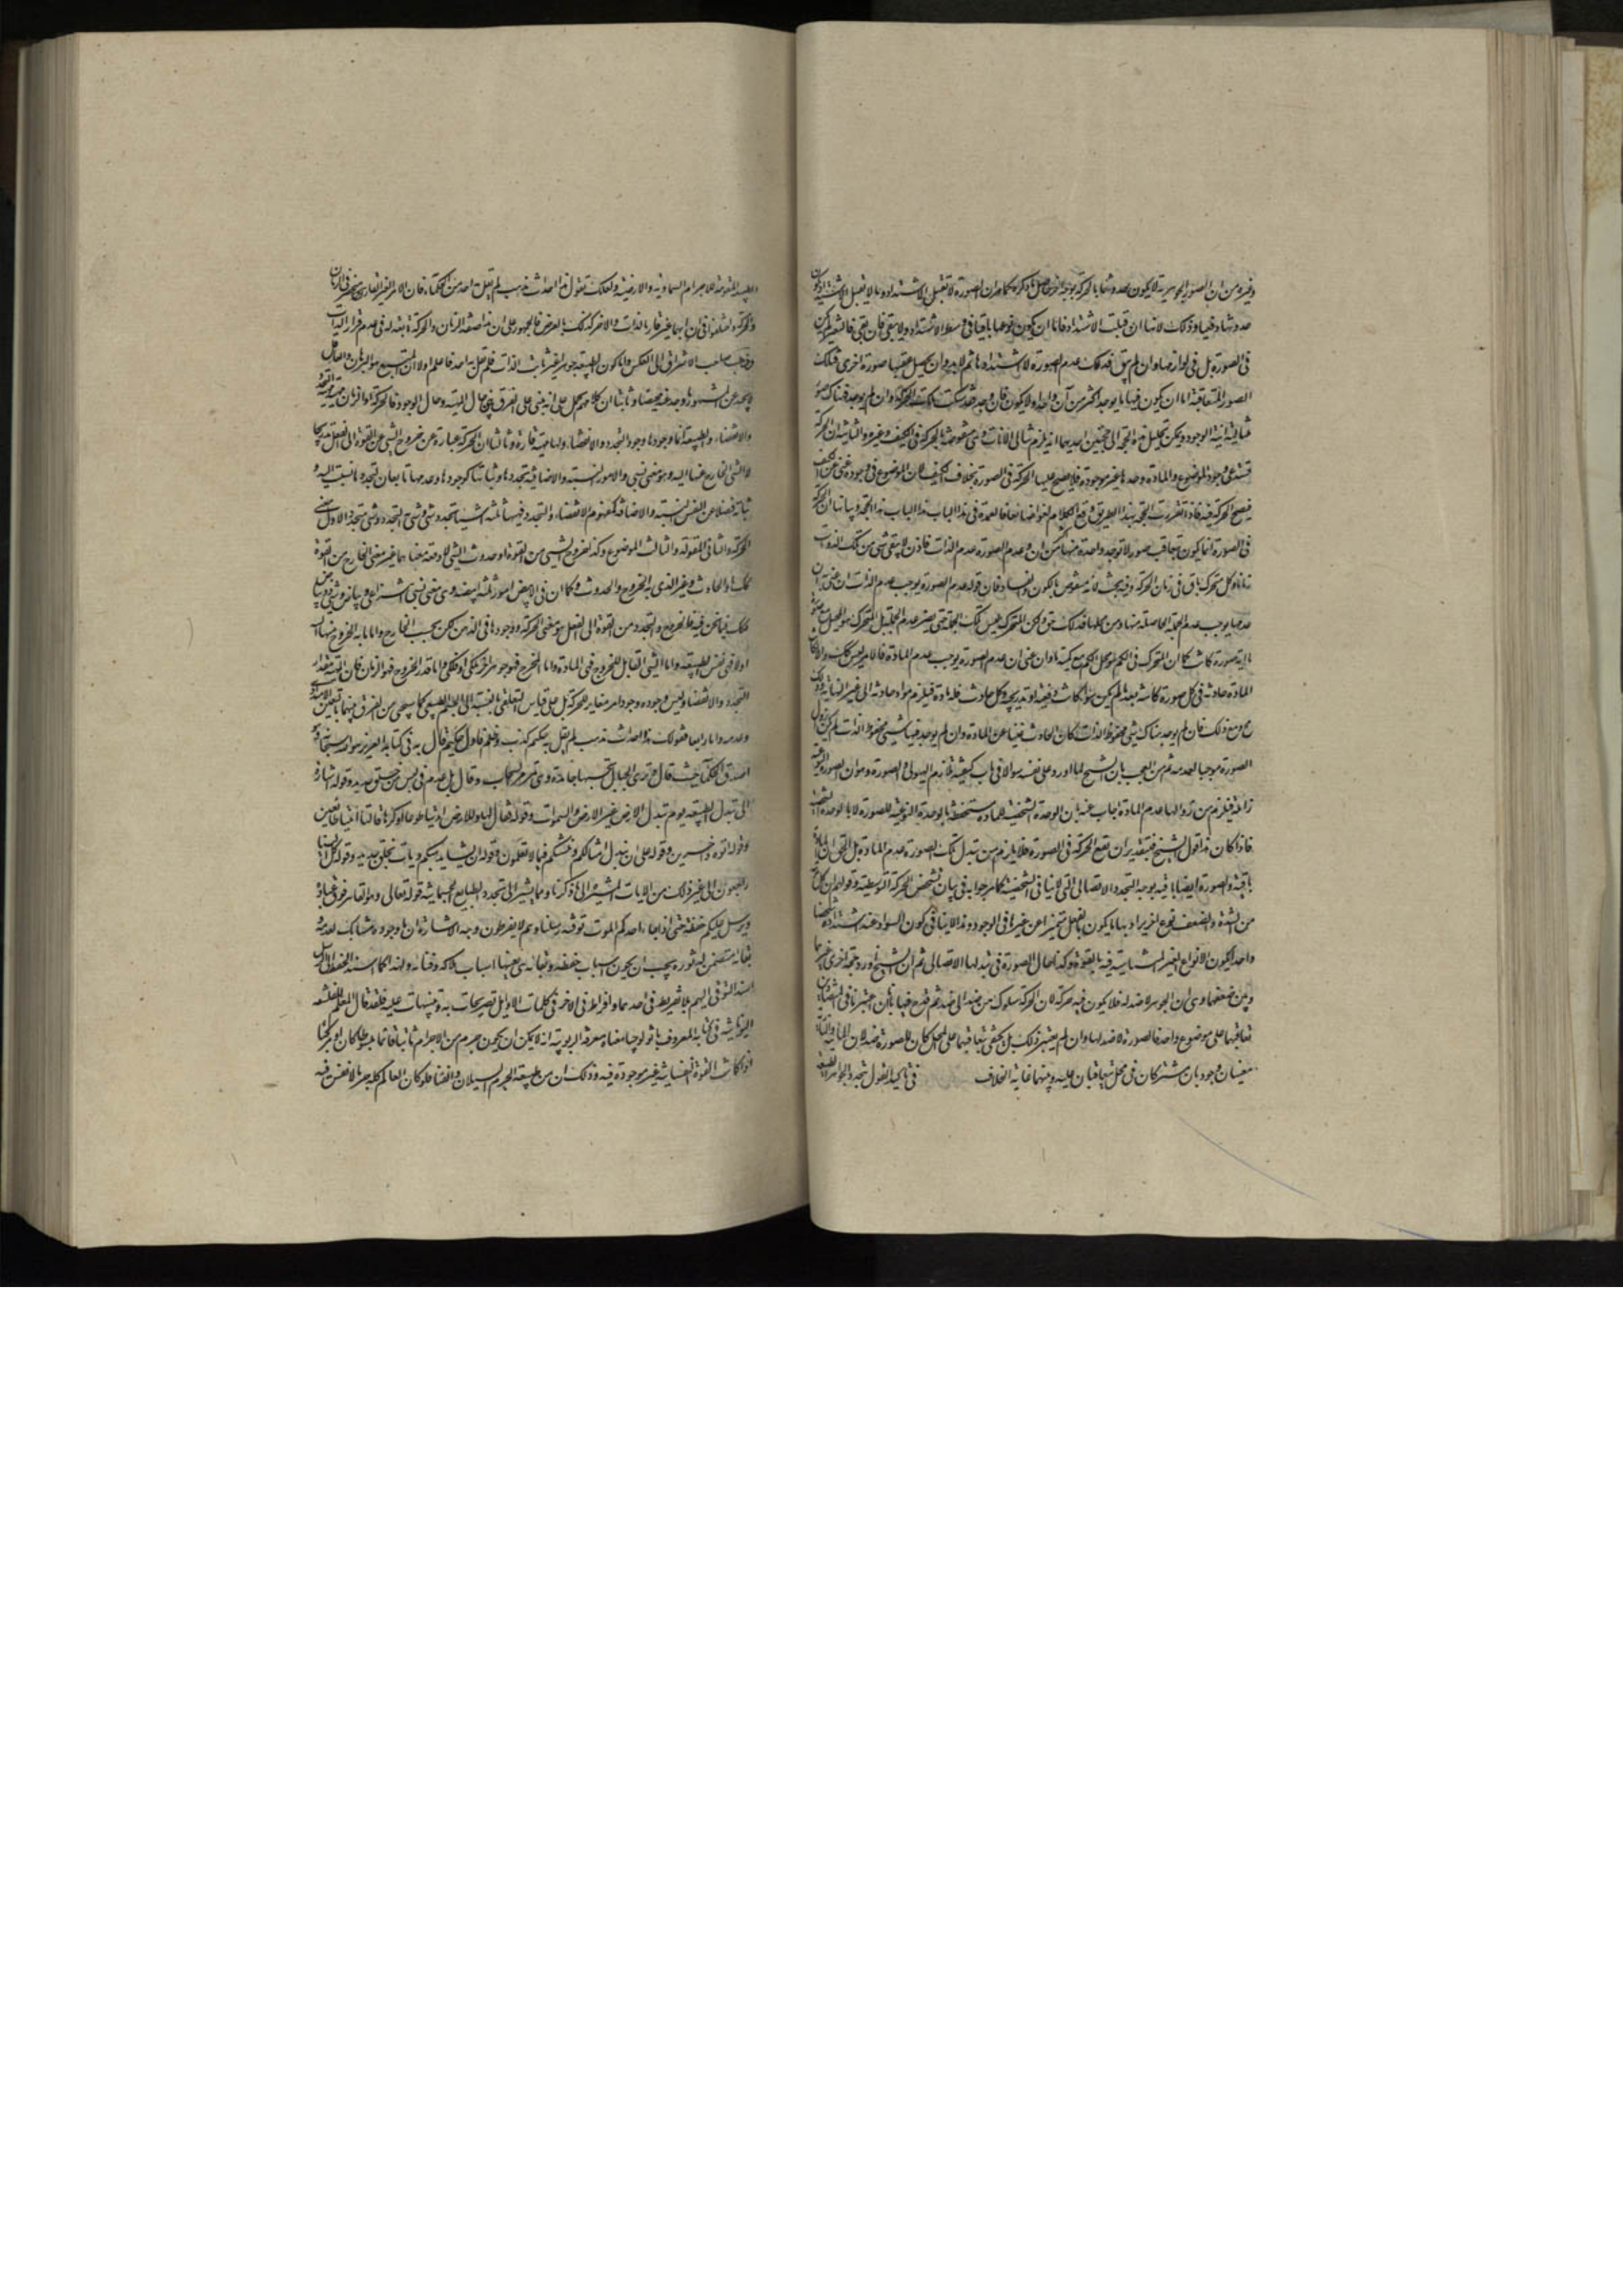 وغيره من ان الصور الجوهرية لا يكون حدوثها بالحركة بوجه آخر حاصل ما ذكروه كما مر ان الصورة لا تقبل الاشتداد وما لا يقبل الاشتداد يكون
حدوثها دفعيا وذلك لانها ان قبلت الاشتداد فاما ان يكون نوعها باقيا في وسط الاشتداد او لا يبقى فان بقي فالتغير لم يكن
في الصورة بل في لوازمها وان لم يبق فذلك عدم الصورة لا اشتدادها ثم لا بد وان يحصل عقيبها صورة اخرى فتلك
الصور المتعاقبة اما ان يكون فيها ما يوجد اكثر من آن واحد او لا يكون فان وجد فقد سكنت تلك الحركة وان لم يوجد فهناك صور
متتالية آنية الوجود ويمكن تحليل هذه الحجة الى حجتين احديهما انه يلزم تتالي الآنات وهي منقوضة بالحركة في الكيف وغيره والثانية ان الحركة
تستدعي وجود الموضوع والمادة وحدها غير موجودة فلا يصح عليها الحركة في الصورة بخلاف الكيف لان الموضوع في وجوده غني عن الكيف
فيصح الحركة فيه فاذا تقررت الحجة بهذا الطريق وقع الكلام لغوا ضائعا فالعمدة في هذا الباب هذه الحجة وبيانها ان الحركة
في الصورة انما يكون بتعاقب صور لا توجد واحدة منها اكثر من آن وعدم الصورة عدم الذات فاذن لا يبقى شيء من تلك الذوات
زمانا وكل متحرك باق في زمان الحركة وفيه بحث لانه منقوض بالكون والفساد فان قوله عدم الصورة يوجب عدم الذات ان عنى به ان
عدمها يوجب عدم الجملة الحاصلة منها ومن محلها فذلك حق ولكن المتحرك ليس تلك الجملة حتى يضر عدم الجملة بل المتحرك هو المحل مع صورة
ما اية صورة كانت كما ان المتحرك في الكم هو محل الكم مع كمية ما وان عنى ان عدم الصورة يوجب عدم المادة فالامر ليس كذلك والا لكان
المادة حادثة في كل صورة كائنة بعد ما لم يكن سواء كانت دفعية او تدريجية وكل حادث فله مادة فيلزم مواد حادثة الى غير النهاية وذلك
مح ومع ذلك فان لم يوجد هناك شيء محفوظ الذات كان الحادث غنيا عن المادة وان لم يوجد فيها شيء محفوظ الذات لم يكن زوال
الصورة موجبا لعدمه ثم من العجب ان الشيخ لما اورد على نفسه سوالا في باب كيفية تلازم الهيولى والصورة وهو ان الصورة النوعية
زائلة فيلزم من زوالها عدم المادة اجاب عنه بان الوحدة الشخصية للمادة مستحفظة بالوحدة النوعية للصورة لا بالوحدة الشخصية
فاذا كان هذا قول الشيخ فبتقدير ان تقع الحركة في الصورة فلا يلزم من تبدل تلك الصورة عدم المادة بل الحق ان المادة
باقية والصورة ايضا باقية بوجه التجدد الاتصالي التي لا ينافي الشخصية كما صرحوا به في بيان تشخص الحركة التوسطية وقولهم ان كل
من الشدة والضعف نوع آخر يراد بها ما يكون بالفعل متميزا عن غيره في الوجود وهذا لا ينافي كون السواد عند اشتداده شخصا
واحدا يكون الانواع الغير المتناهية فيه بالقوة وكذا حال الصورة في تبدلها الاتصالي ثم ان الشيخ اورد حجة اخرى غيرها
وبين ضعفها وهي ان الجوهر لا ضد له فلا يكون فيه حركة لان الحركة سلوك من ضد الى ضد ثم قدح فيها بانا ان اعتبرنا في المتضادين
تعاقبهما على موضوع واحد فالصورة لا ضد لها وان لم يعتبر ذلك بل يكتفي بتعاقبهما على المحل كان للصورة ضد لان المائية والنارية
معنيان وجوديان مشتركان في محل يتعاقبان عليه وبينهما غاية الخلاف في تاكيد القول بتجدد الجواهر الطبيعية
المقومة للاجرام السماوية والارضية ولعلك تقول هذا احداث مذهب لم يقل به احد من الحكماء فان الامر الغير القار منحصر في الزمان
والحركة واختلفوا في ان ايهما غير قار بالذات والاخر كذلك بالعرض فالجمهور على ان هذا صفة الزمان والحركة تابعة له في عدم قرار الذات
وذهب صاحب الاشراق الى العكس واما كون الطبيعة جوهرا غير ثابت الذات فلم يقل به احد فاعلم اولا ان المتبع هو البرهان والعاقل
لا يحيد عن المشهور ما وجد عنه محيصا وثانيا ان كلامهم يحمل على انه مبني على الفرق بين حال المهية وحال الوجود فالحركة والزمان مهيته التجدد
والانقضاء والطبيعة انما وجودها وجود التجدد والانقضاء ولها مهية قارة وثالثا ان الحركة عبارة عن خروج الشيء من القوة الى الفعل تدريجا
لا الشيء الخارج عنها اليه وهو معنى نسبي والامور النسبية والاضافية تجددها وثباتها كوجودها وعدمها تابعان لتجدد ما نسبت اليه و
ثباته فضلا عن نفس النسبة والاضافة كمفهوم الانقضاء والتجدد فههنا ثلثة اشياء تجدد شيء وشيء به التجدد وشيء متجدد والاول معنى
الحركة والثاني المقولة والثالث الموضوع وكذا خروج الشيء من القوة او حدوث الشيء لا دفعة معناهما غير معنى الخارج من القوة
كذلك او الحادث وغير الذي به الخروج والحدوث وكما ان في الابيض امور ثلثة ابيضية وهي معنى نسبي انتزاعي وبياض وشيء ذو بياض
فكذلك فيما نحن فيه فالخروج التجددي من القوة الى الفعل هو معنى الحركة ووجودها في الذهن لكن بحسب الخارج واما ما به الخروج منها
اولا فهي نفس الطبيعة واما الشيء القابل للخروج فهي المادة واما المخرج فهو جوهر آخر ملكي او فلكي واما قدر الخروج فهو الزمان فان مهيته مقدار
التجدد والانقضاء وليس وجوده وجود امر مغاير للحركة بل على قياس الجسم التعليمي بالنسبة الى الجسم الطبيعي كما سيجيء من الفرق بينهما بالتعين الامتدادي
وعدمه واما رابعا فقولك هذا احداث مذهب لم يقل به حكيم كذب وظلم فاول حكيم قال به في كتابه العزيز هو الله سبحانه وهو
اصدق الحكماء حيث قال وترى الجبال تحسبها جامدة وهي تمر مر السحاب وقال بل هم في لبس من خلق جديد وقوله اشارة
الى تبدل الطبيعة يوم تبدل الارض غير الارض والسموات وقوله فقال لها وللارض ائتيا طوعا او كرها قالتا اتينا طائعين
وقوله وكل اتوه داخرين وقوله على ان نبدل امثالكم وننشئكم فيما لا تعلمون وقوله ان يشا يذهبكم ويات بخلق جديد وقوله كل الينا
راجعون الى غير ذلك من الايات المشيرة الى ما ذكرناه ومما يشير الى تجدد الطبايع الجسمانية قوله تعالى وهو القاهر فوق عباده
ويرسل عليكم حفظة حتى اذا جاء احدكم الموت توفته رسلنا وهم لا يفرطون وجه الاشارة ان ما وجوده مشابك لعدمه و
بقائه متضمن لدثوره يجب ان يكون اسباب حفظه وبقائه هي بعينها اسباب هلاكه وفنائه ولهذا كما اسند الحفظ الى الرسل
اسند التوفي اليهم بلا تفريط في احدهما وافراط في الاخر وفي كلمات الاوايل تصريحات به وتنبيهات عليه فلقد قال المعلم للفلسفة
اليونانية في كتابه المعروف باثولوجيا معناه معرفة الربوبية انه لا يمكن ان يكون جرم من الاجرام ثابتا قائما مبسوطا كان او مركبا
اذا كانت القوة النفسانية غير موجودة فيه وذلك ان من طبيعة الجرم السيلان والفناء فلو كان العالم كله جرما لا نفس فيه